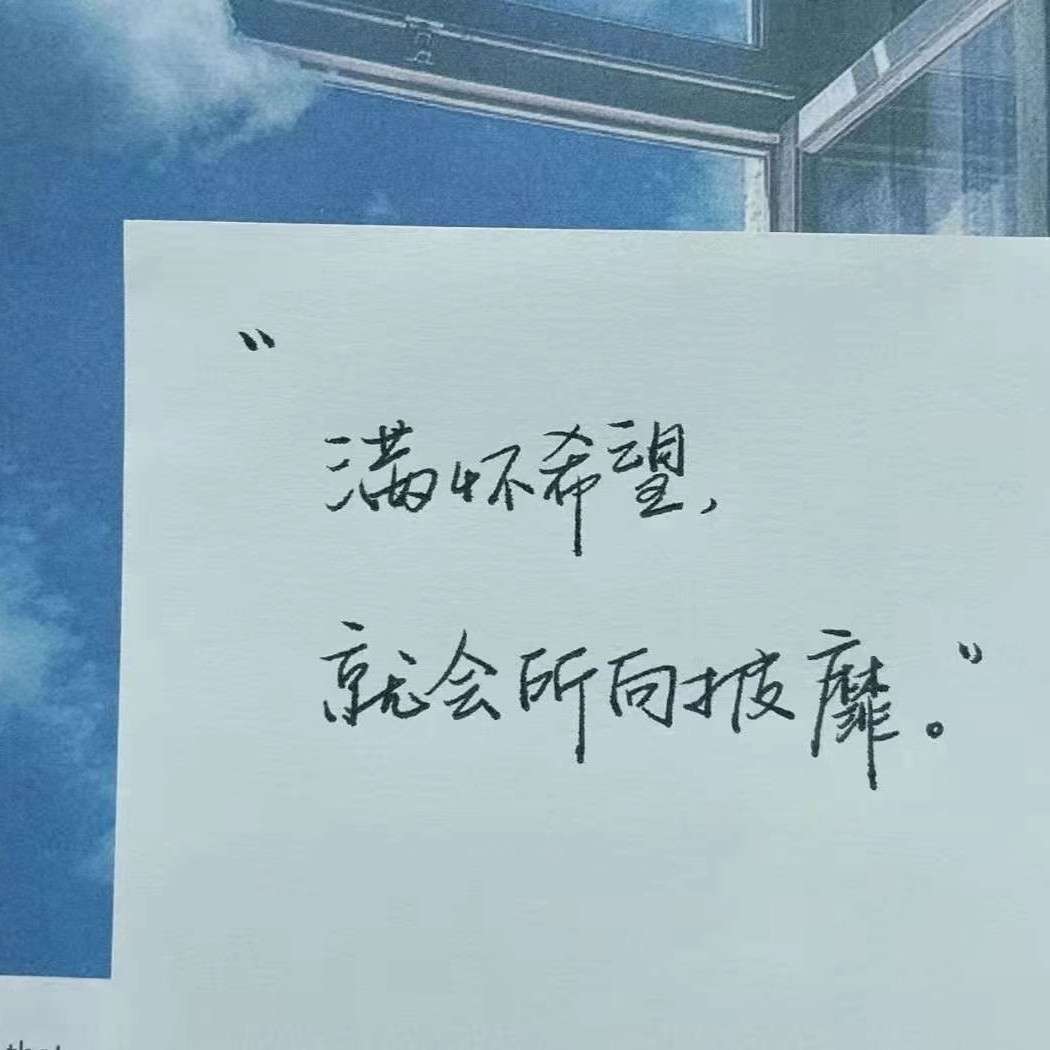 “满怀希望,
就会所向披靡。”